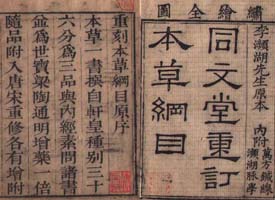 繡繪全圖
李瀕湖先生原本
內附
萬方鍼線
瀕湖脉學
同文堂重訂
本草綱目
重刻本草綱目原序
本草一書撰自軒皇種别三十
六分為三品與內經素問諸書
並為世寶梁陶通明增藥一倍
隨品附入唐宋重修各有增附